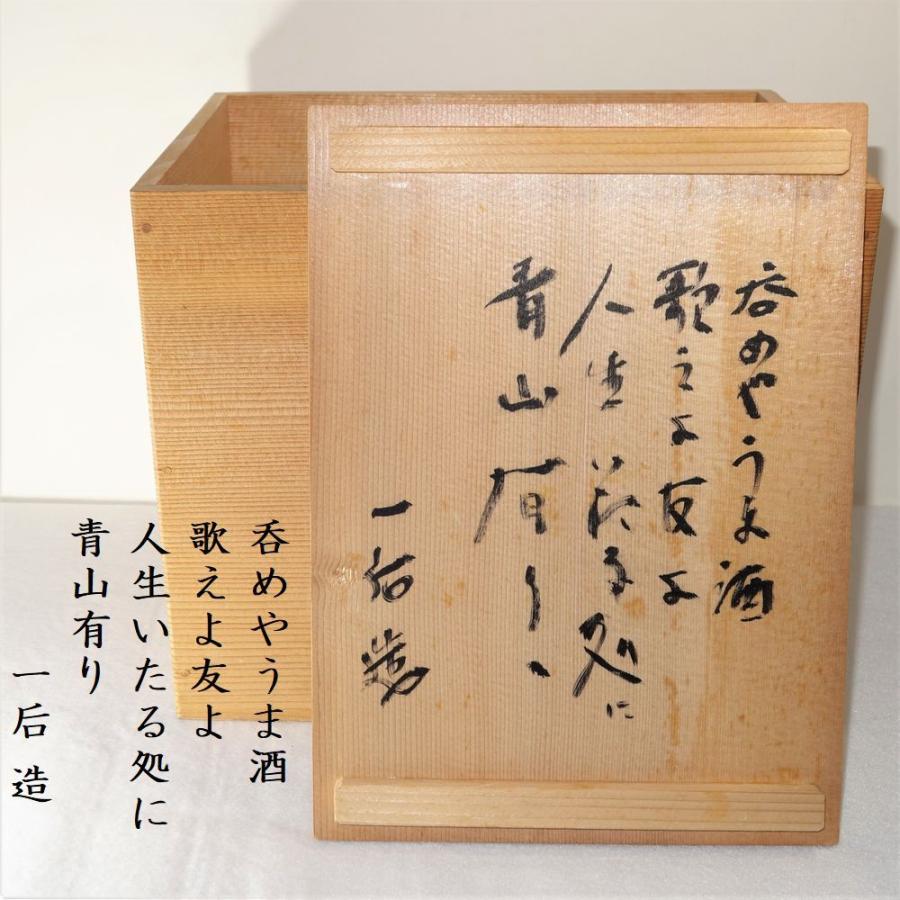 呑めやうま酒
歌えよ友よ
人生いたる処に
青山有り
一后造
呑めやうま酒
歌えよ友よ
人生いたる処に
青山有り
一后 造